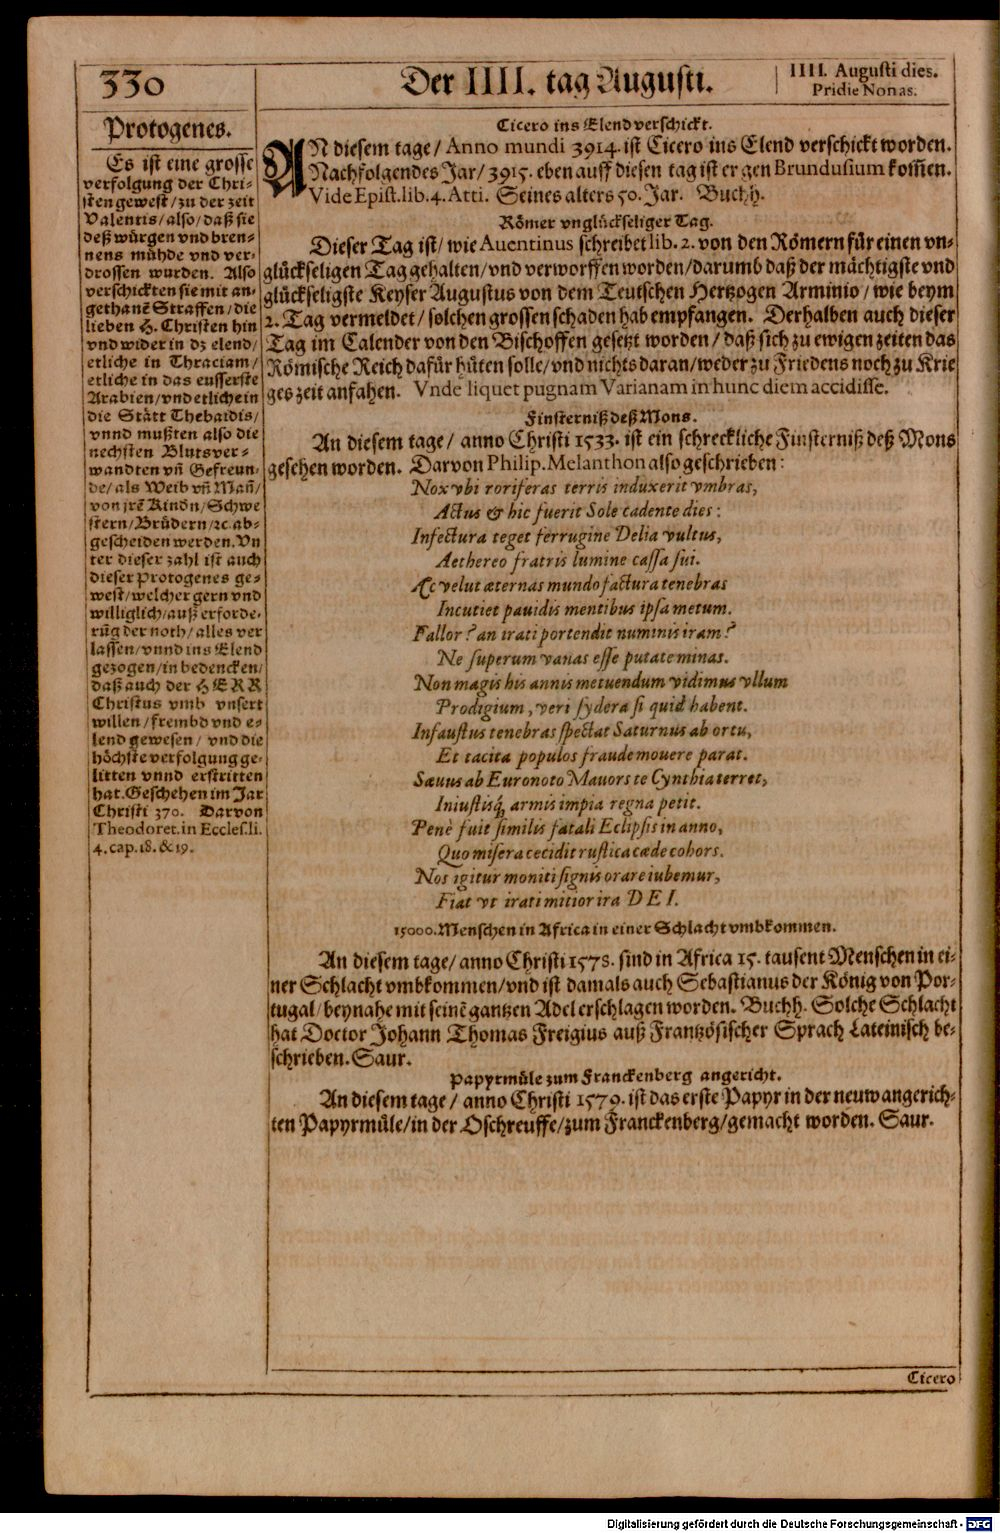 330
Der IIII. tag Augusti.
IIII. Augusti dies.
Pridie Nonas.
Protogenes.
Es ist eine grosse
verfolgung der Chri-
sten gewest/zu der zeit
Valentis/also/daß sie
deß würgen vnd bren-
nens mühde vnd ver-
drossen wurden. Also
verschickten sie mit an-
gethanē Straffen/die
lieben H. Christen hin
vnd wider in dz elend/
etliche in Thraciam/
etliche in das eusserste
Arabien/vnd etliche in
die Stätt Thebaidis/
vnnd mußten also die
nechsten Blutsver-
wandten vn̄ Gefreun-
de/als Weib vn̄ Man̄/
von jrē Kindn/Schwe
stern/Brüdern/ꝛc. ab-
gescheiden werden. Vn
ter dieser zahl ist auch
dieser Protogenes ge-
west/welcher gern vnd
williglich/auß erforde-
rūg der noth/alles ver
lassen/vnnd ins Elend
gezogen/in bedencken/
daß auch der HERR
Christus vmb vnsert
willen/frembd vnd e-
lend gewesen/ vnd die
höchste verfolgung ge-
litten vnnd erstritten
hat. Geschehen im Jar
Christi 370. Darvon
Theodoret. in Eccles. li.
4. cap. 18. & 19.
Cicero ins Elend verschickt.
AN diesem tage/ Anno mundi 3914. ist Cicero ins Elend verschickt worden.
Nachfolgendes Jar/ 3915. eben auff diesen tag ist er gen Brundusium kom̄en.
Vide Epist. lib. 4. Atti. Seines alters 50. Jar. Buchh.
Römer vnglückseliger Tag.
Dieser Tag ist/ wie Auentinus schreibet lib. 2. von den Römern für einen vn-
glückseligen Tag gehalten/vnd verworffen worden/darumb daß der mächtigste vnd
glückseligste Keyser Augustus von dem Teutschen Hertzogen Arminio/ wie beym
2. Tag vermeldet/ solchen grossen schaden hab empfangen. Derhalben auch dieser
Tag im Calender von den Bischoffen gesetzt worden/ daß sich zu ewigen zeiten das
Römische Reich dafür hüten solle/vnd nichts daran/weder zu Friedens noch zu Krie
ges zeit anfahen. Vnde liquet pugnam Varianam in hunc diem accidisse.
Finsterniß deß Mons.
An diesem tage/ anno Christi 1533. ist ein schreckliche Finsterniß deß Mons
gesehen worden. Darvon Philip. Melanthon also geschrieben:
Nox vbi roriferas terris induxerit vmbras,
Actus & hic fuerit Sole cadente dies:
Infectura teget ferrugine Delia vultus,
Aethereo fratris lumine cassa sui.
Ac velut æternas mundo factura tenebras
Incutiet pauidis mentibus ipsa metum.
Fallor? an irati portendit numinis iram?
Ne superum vanas esse putate minas.
Non magis his annis metuendum vidimus vllum
Prodigium, veri sydera si quid habent.
Infaustus tenebras spectat Saturnus ab ortu,
Et tacita populos fraude mouere parat.
Sæuus ab Euronoto Mauors te Cynthia terret,
Iniustisq́ armis impia regna petit.
Penè fuit similis fatali Eclipsis in anno,
Quo misera cecidit rustica cæde cohors.
Nos igitur moniti signis orare iubemur,
Fiat vt irati mitior ira DEI.
15000. Menschen in Africa in einer Schlacht vmbkommen.
An diesem tage/ anno Christi 1578. sind in Africa 15. tausent Menschen in ei-
ner Schlacht vmbkommen/vnd ist damals auch Sebastianus der König von Por-
tugal/beynahe mit seinē gantzen Adel erschlagen worden. Buchh. Solche Schlacht
hat Doctor Johann Thomas Freigius auß Frantzösischer Sprach Lateinisch be-
schrieben. Saur.
Papyrmüle zum Franckenberg angericht.
An diesem tage/ anno Christi 1579. ist das erste Papyr in der neuw angerich-
ten Papyrmüle/in der Oschreuffe/zum Franckenberg/gemacht worden. Saur.
Cicero
Digitalisierung gefördert durch die Deutsche Forschungsgemeinschaft - DFG